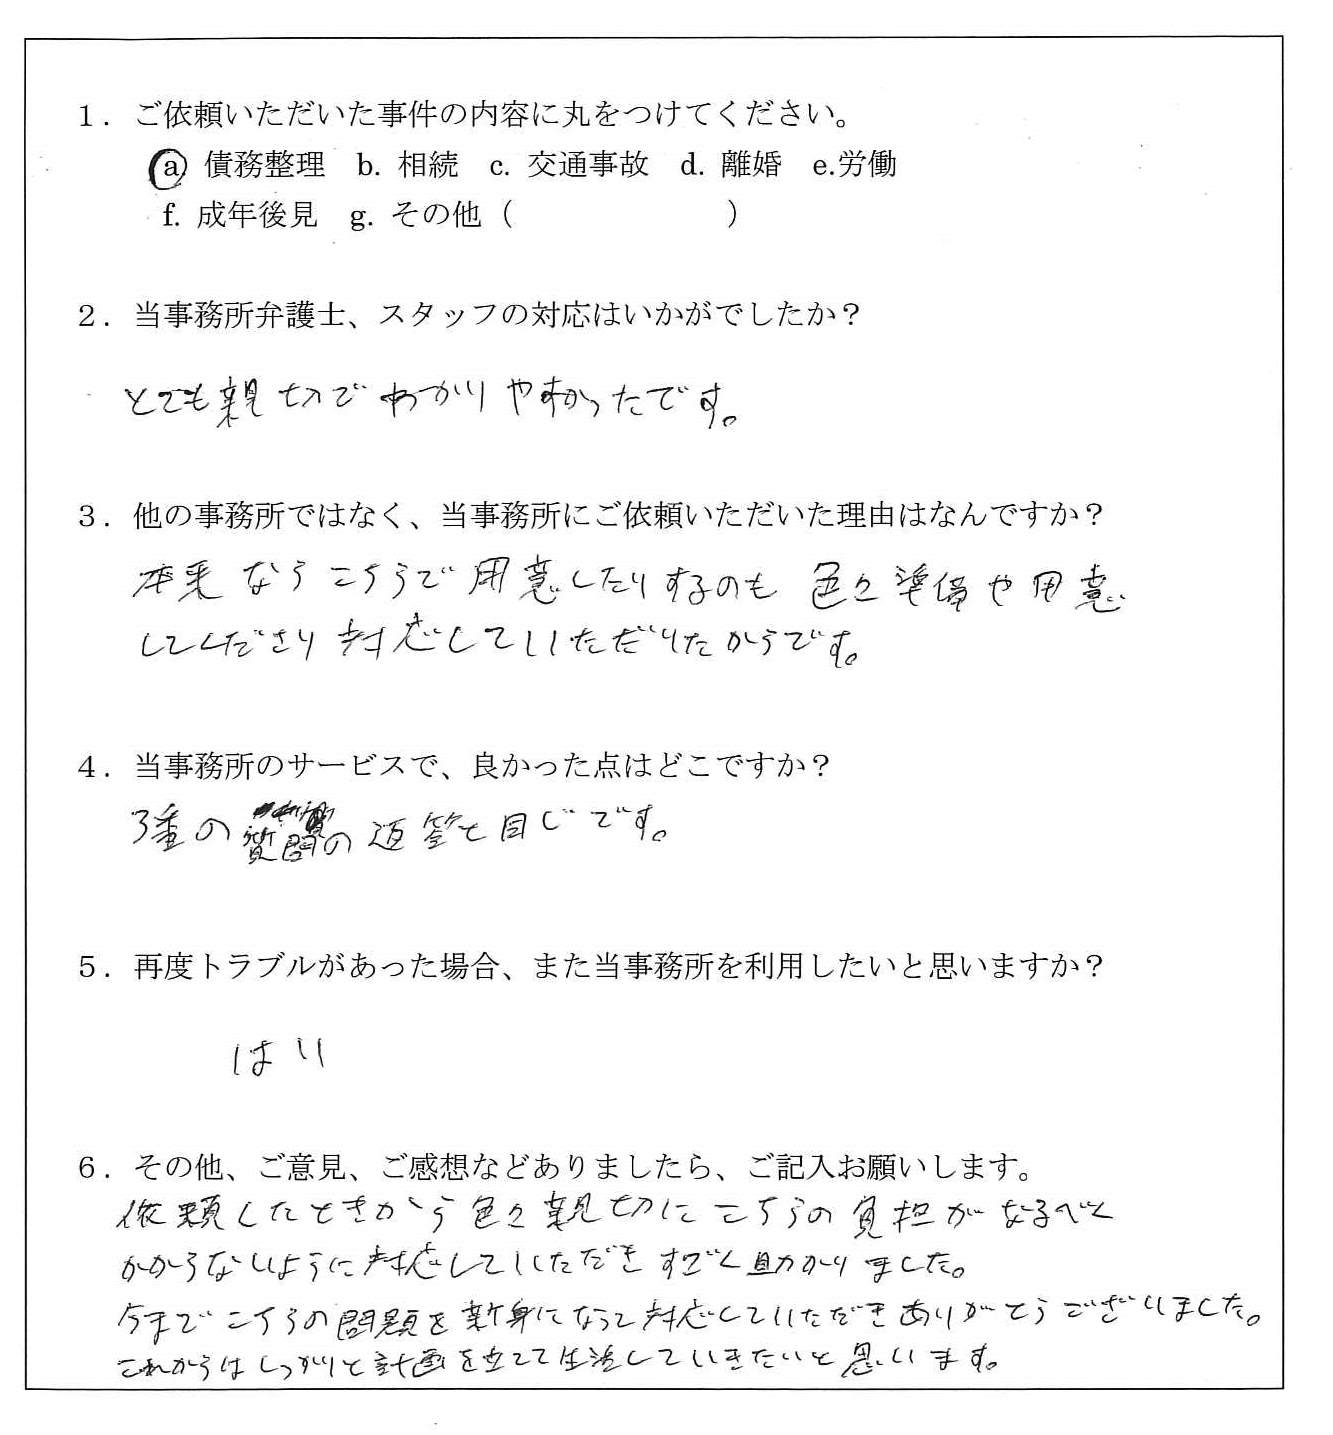 １．ご依頼いただいた事件の内容に丸をつけてください。
a 債務整理　b. 相続　c. 交通事故　d. 離婚　e.労働
f. 成年後見　g. その他（　　　　　　　）
２．当事務所弁護士、スタッフの対応はいかがでしたか？
とても親切でわかりやすかったです。
３．他の事務所ではなく、当事務所にご依頼いただいた理由はなんですか？
本来ならこちらで用意したりするのも色々準備や用意
してくださり対応していただいたからです。
４．当事務所のサービスで、良かった点はどこですか？
3番の質問の返答と同じです。
５．再度トラブルがあった場合、また当事務所を利用したいと思いますか？
はい
６．その他、ご意見、ご感想などありましたら、ご記入お願いします。
依頼したときから色々親切にこちらの負担がなるべく
かからないように対応していただきすごく助かりました。
今までこちらの問題を親身になって対応していただきありがとうございました。
これからはしっかりと計画を立てて生活していきたいと思います。